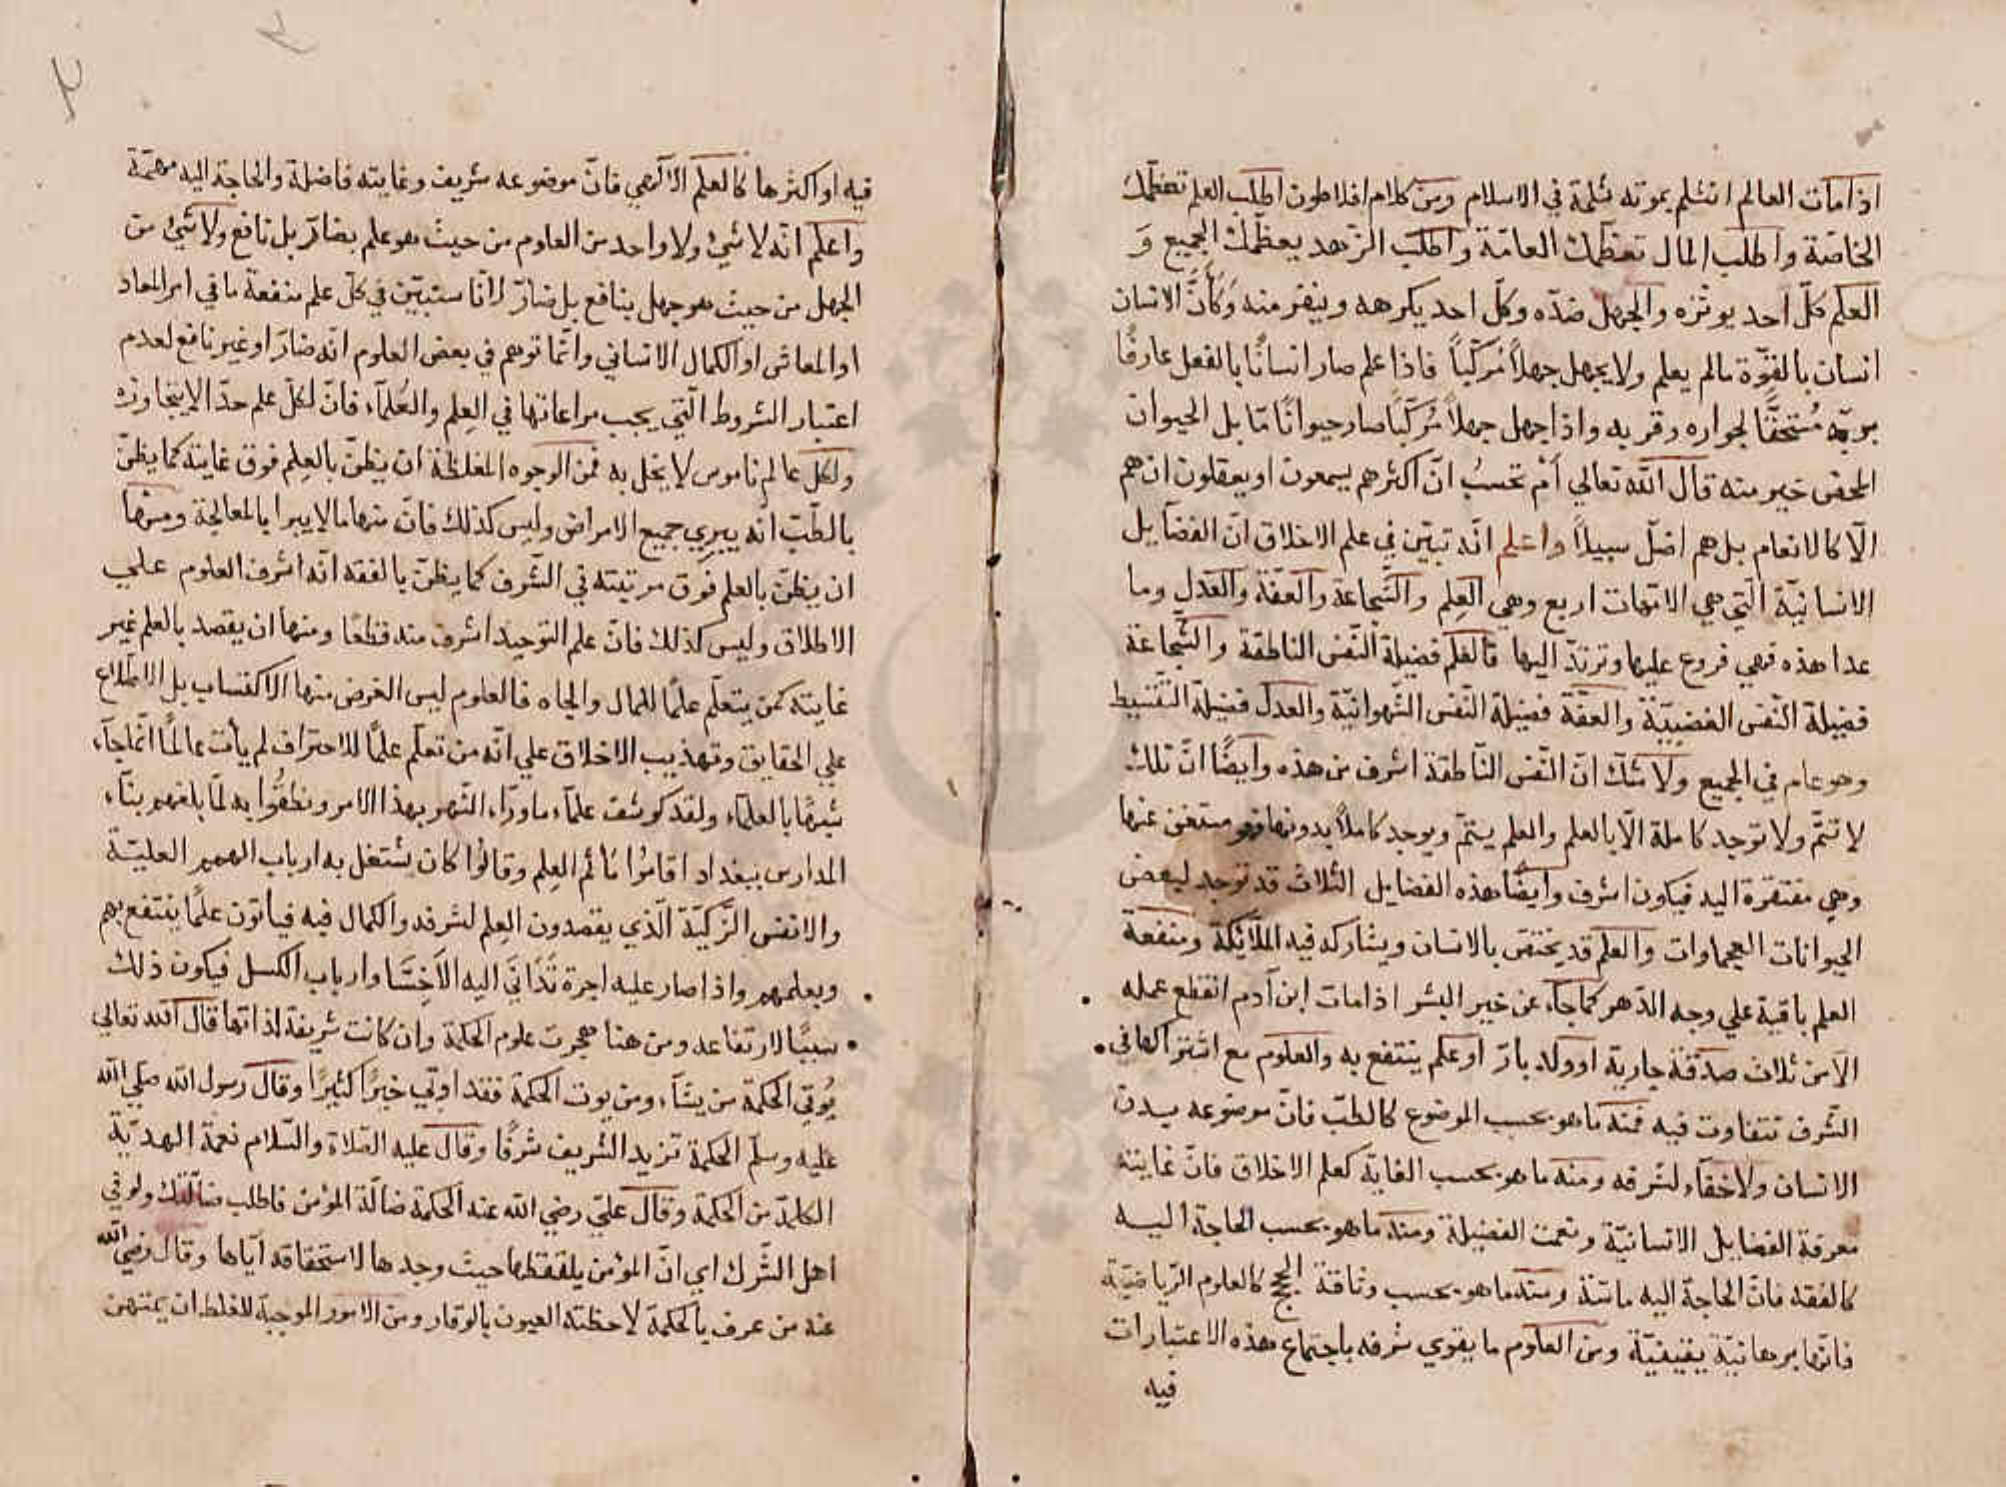 اذا مات العالم انثلم بموته ثلمة في الاسلام ومن كلام افلاطون اطلب العلم تعظمك
الخاصّة واطلب المال تعظمك العامّة واطلب الزّهد يعظّمك الجميع وَ
العلم كلّ احد يوثره والجهل ضدّه وكلّ احد يكرهه وينفر منه وَكَأَنَّ الانسان
انسان بالقوّة مالم يعلم ولا يجهل جهلاً مُركّباً فاذا علم صار انسانًا بالفعل عارفًا
بربّه مُستحقًّا لجواره وقربه واذا جهل جهلاً مُركّبًا صار حيوانًا مّا بل الحيوان
المحض خير منه قال الله تعالي اَمْ تحسبُ انّ اكثرهم يسمعون او يعقلون ان هم
الّا كالانعام بل هم اضلّ سبيلاً واعلم انّه تبيّن في علم الاخلاق انّ الفضايل
الانسانيّة الّتي هي الامّهات اربع وهي العِلم والشّجاعة والعفّة والعدل وما
عدا هذه فهي فروع عليها وترتدّ اليها فالعلم فضيلة النّفس الناطقة والشّجاعة
فضيلة النّفس الغضبيّة والعفّة فضيلة النّفس الشّهوانيّة والعدل فضيلة التّقسيط
وهو عام في الجميع ولا شكّ انّ النّفس النّاطقة اشرف من هذه وايضًا انّ تلك
لا تتمّ ولا توجد كاملة الّا بالعلم والعلم يتمّ ويوجد كاملاً بدونها فهو مستغن عنها
وهي مفتقرة اليه فيكون اشرف وايضًا هذه الفضايل الثلاث قد توجد لبعض
الحيوانات العجماوات والعلم قد يختصّ بالانسان ويشاركه فيه الملآئكة ومنفعة
العلم باقية علي وجه الدّهر كما جآء عن خير البشر اذا مات ابن آدم انقطع عمله
الّا من ثلاث صدقة جارية او ولد بارّ او علم ينتفع به والعلوم مع اشتراكها في
الشّرف تتفاوت فيه فمنه ما هو بحسب الموضوع كالطبّ فانّ موضوعه بدن
الانسان ولا خفآء لشرفه ومنه ما هو بحسب الغاية كعلم الاخلاق فانّ غايته
معرفة الفضايل الانسانيّة ونعمت الفضيلة ومنه ما هو بحسب الحاجة اليه
كالفقه فانّ الحاجة اليه ماسّة ومنه ما هو بحسب وثاقة الحجج كالعلوم الرّياضيّة
فانّها برهانيّة يقينيّة ومن العلوم ما يقوي شرفه باجتماع هذه الاعتبارات
فيه
فيه او اكثرها كالعلم الالٓهي فانّ موضوعه شريف وغايته فاضلة والحاجة اليه مهمّة
واعلم انّه لا شيئ ولا واحد من العلوم من حيث هو علم بضارّ بل نافع ولا شيئ من
الجهل من حيث هو جهل بنافع بل ضارّ لانّا سنبيّن في كلّ علم منفعة ما في امر المعاد
او المعاش او الكمال الانساني وانّما توهم في بعض العلوم انّه ضارّ او غير نافع لعدم
اعتبار الشروط الّتي يجب مراعاتها في العِلم والعُلمآء فانّ لكلّ علم حدّا لا يتجاوزه
ولكل عالم ناموس لا يخل به فمن الوجوه المغلطة ان يظنّ بالعِلم فوق غايته كما يظنّ
بالطّبّ انّه يبري جميع الامراض وليس كذلك فانّ منها ما لا يبرا بالمعالجة ومنها
ان يظنّ بالعلم فوق مرتبته في الشّرف كما يظنّ بالفقه انّه اشرف العلوم علي
الاطلاق وليس كذلك فانّ علم التوحيد اشرف منه قطعًا ومنها ان يقصد بالعلم غير
غايته كمن يتعلّم علمًا للمال والجاه فالعلوم ليس الغرض منها الاكتساب بل الاطّلاع
علي الحقايق وتهذيب الاخلاق علي انّه من تعلّم علمًا للاحتراف لم يأت عالمًا انّما جآء
شبيهًا بالعلمآء ولقد كوشف علمآء ماورآء النّهر بهذا الامر ونطقُوا به لمّا بلغهم بنآء
المدارس ببغداد اقامُوا مأتم العِلم وقالُوا كان يشتغل به ارباب الهمم العليّة
والانفس الزّكيّة الّذي يقصدون العِلم لشرفه والكمال فيه فيأتون علمًا ينتفع بهم
وبعلمهم واذا صار عليه اجرة تَدَانَي اليه الاَخِسَّا وارباب الكسل فيكون ذلك
سببًا لارتفاعه ومن هنا هجرت علوم الحكمة وان كانت شريفة لذاتها قال الله تعالي
يُوتي الحكمة من يشآء ومن يوت الحكمة فقد اوتي خيرًا كثيرًا وقال رسول الله صلّي الله
عليه وسلّم الحكمة تزيد الشريف شرفًا وقال عليه الصّلاة والسّلام نعمة الهديّة
الكلمة من الحكمة وقال عليّ رضي الله عنه الحكمة ضالّة المؤمن فاطلب ضالّتك ولو في
اهل الشّرك اي انّ المؤمن يلتقطها حيث وجدها لاستحقاقه ايّاها وقال رضي الله
عنه من عرف بالحكمة لاحظته العيون بالوقار ومن الامور الموجبة للغلط ان يمتهن